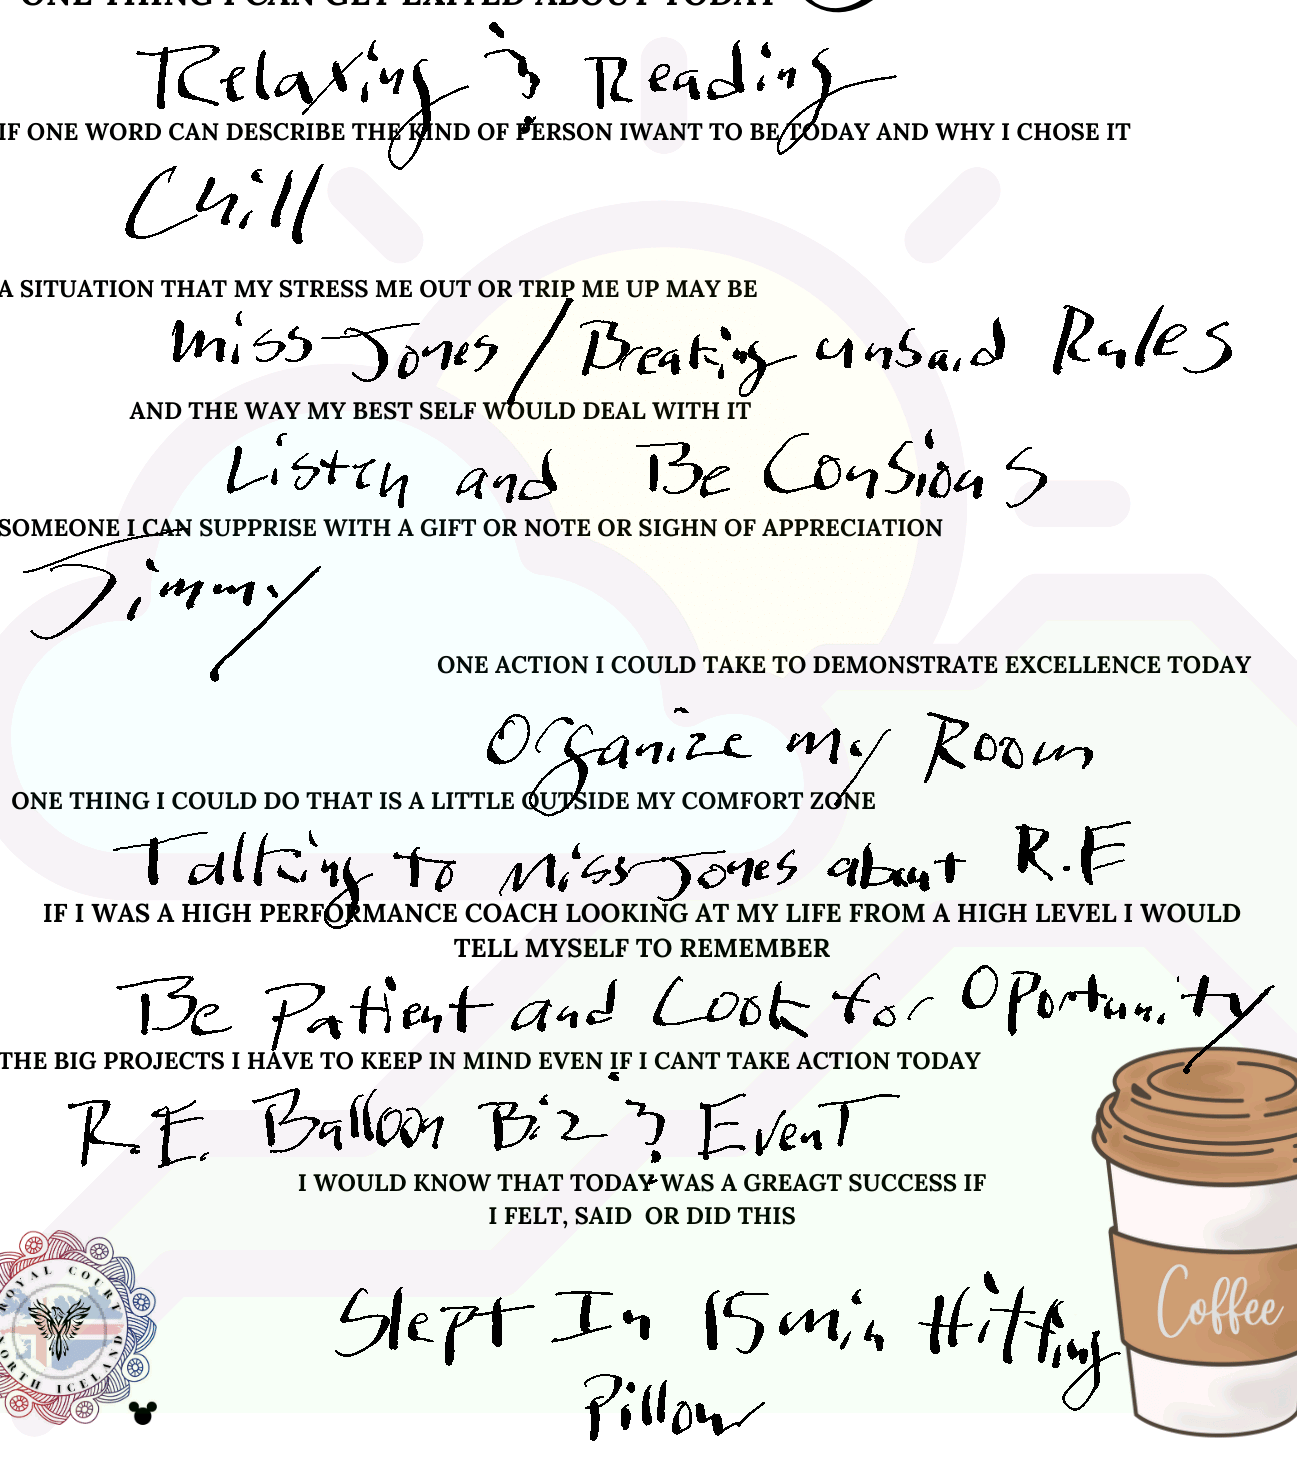 ONE THING I CAN GET EXITED ABOUT TODAY
Relaxing & Reading
IF ONE WORD CAN DESCRIBE THE KIND OF PERSON IWANT TO BE TODAY AND WHY I CHOSE IT
Chill
A SITUATION THAT MY STRESS ME OUT OR TRIP ME UP MAY BE
Miss Jones / Breaking unsaid Rules
AND THE WAY MY BEST SELF WOULD DEAL WITH IT
Listen and Be Consious
SOMEONE I CAN SUPPRISE WITH A GIFT OR NOTE OR SIGHN OF APPRECIATION
Jimmy
ONE ACTION I COULD TAKE TO DEMONSTRATE EXCELLENCE TODAY
Organize my Room
ONE THING I COULD DO THAT IS A LITTLE OUTSIDE MY COMFORT ZONE
Talking to Miss Jones about R.E
IF I WAS A HIGH PERFORMANCE COACH LOOKING AT MY LIFE FROM A HIGH LEVEL I WOULD
TELL MYSELF TO REMEMBER
Be Patient and Look for Oportunity
THE BIG PROJECTS I HAVE TO KEEP IN MIND EVEN IF I CANT TAKE ACTION TODAY
R.E. Balloon Biz & Event
I WOULD KNOW THAT TODAY WAS A GREAGT SUCCESS IF
I FELT, SAID OR DID THIS
Slept In 15 min Hitting
Pillow
Coffee
ROYAL COURT
NORTH ICELAND